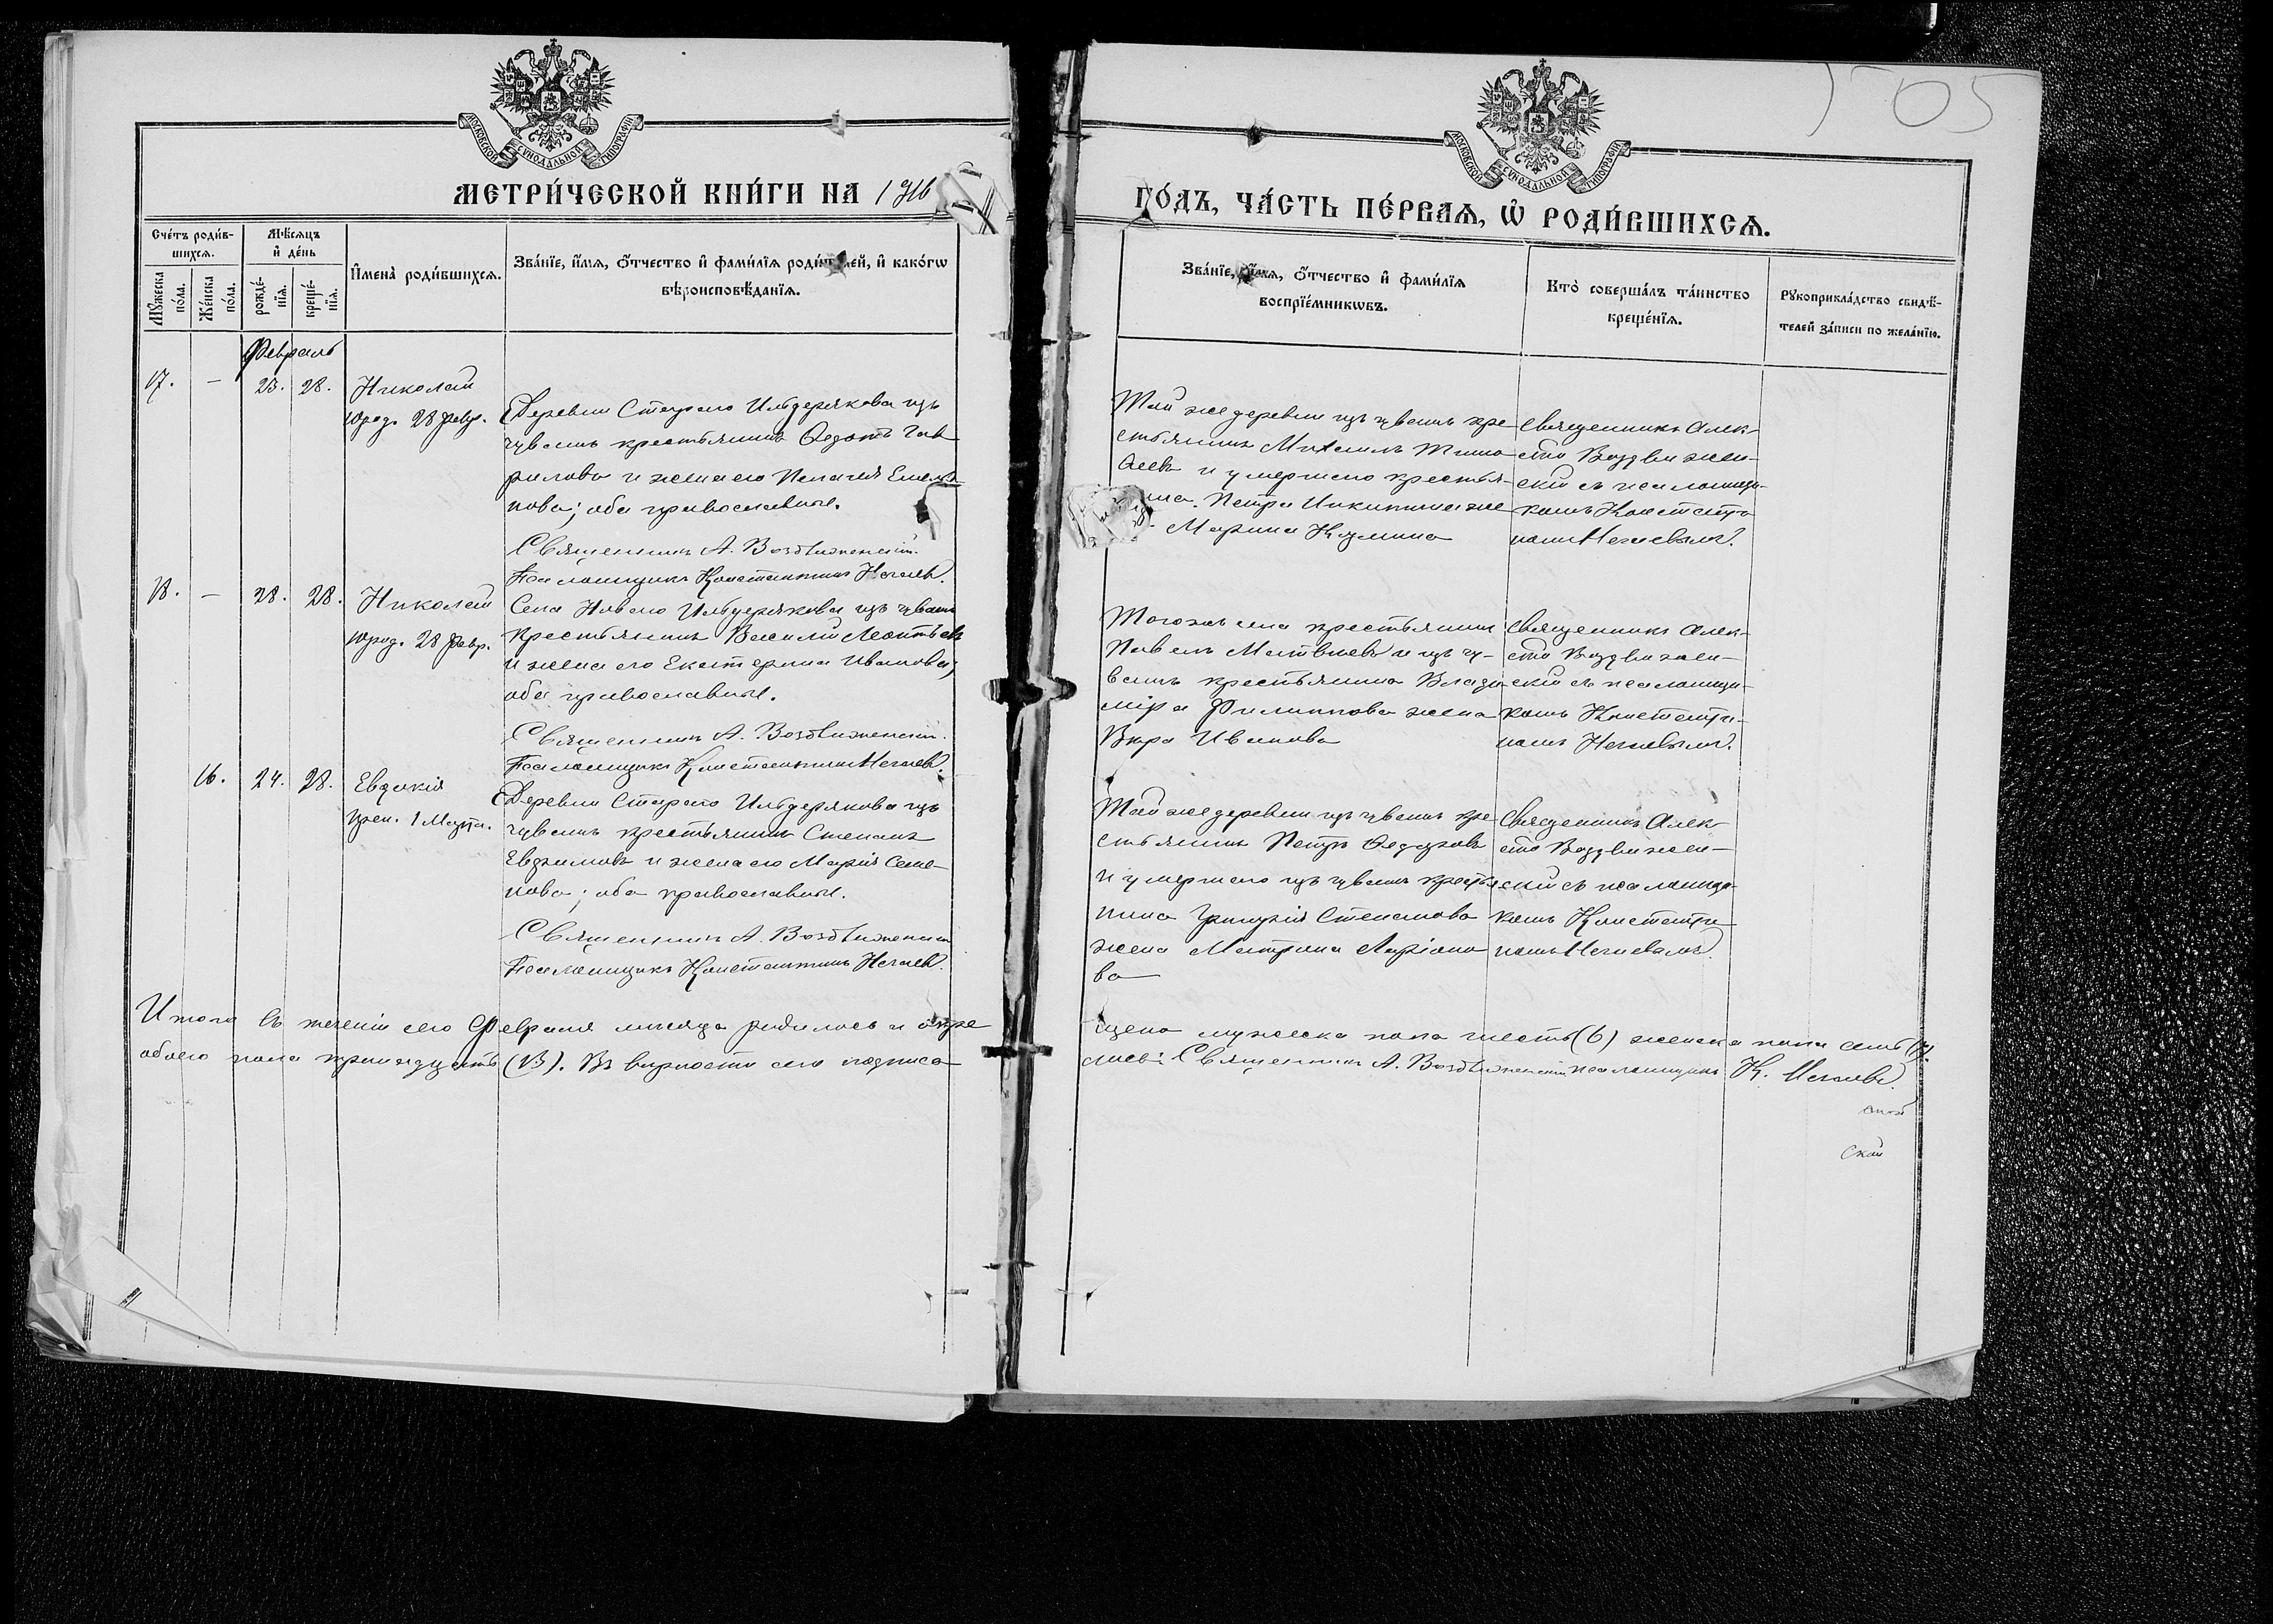 505
МОСКОВСКОЙ СѴНОДАЛЬНОЙ ТИПОГРАФІИ
МОСКОВСКОЙ СѴНОДАЛЬНОЙ ТИПОГРАФІИ
МЕТРИ́ЧЕСКОЙ КНИ́ГИ НА 1916
ГО́ДЪ, ЧА́СТЬ ПЕ́РВАѦ, Ѡ҆ РОДИ́ВШИХСѦ.
Сче́тъ роди́в-
шихсѧ.
Мꙋ́жеска по́ла.
Же́нска по́ла.
Мѣ́сѧцъ
и҆ де́нь
рожде́-
нїѧ.
креще́-
нїѧ.
И҆мена̀ роди́вшихсѧ.
Зва́нїе, и҆́мѧ, ѻ҆́тчество и҆ фами́лїѧ роди́телей, и҆ како́гѡ
вѣроисповѣ́данїѧ.
Зва́нїе, и҆́мѧ, ѻ҆́тчество и҆ фами́лїѧ
воспрїе́мникѡвъ.
Кто̀ соверша́лъ та́инство
креще́нїѧ.
Рꙋкоприкла́дство свидѣ́-
телей за́писи по жела́нїю.
Февраль
17. — 23. 28. Николай
юрод. 28 февр.
Деревни Стараго Ильдерякова изъ
чувашъ крестьянинъ Ѳедотъ Гав
риловъ и жена его Пелагія Емелья
нова; оба православные.
Священникъ А. Воздвиженскій.
Псаломщикъ Константинъ Нечаевъ.
Той же деревни изъ чувашъ кре
стьянинъ Михаилъ Тимо
ѳеевъ и умершаго крестья
нина Петра Никитина же
Марина Кузмина
Священникъ Алек-
сѣй Воздвижен-
скій съ псаломщи-
комъ Константи
номъ Нечаевымъ.
18. — 28. 28. Николай
юрод. 28 февр.
Села Новаго Ильдерякова изъ чувашъ
крестьянинъ Василій Леонтьевъ
и жена его Екатерина Иванова;
оба православные.
Священникъ А. Воздвиженскій.
Псаломщикъ Константинъ Нечаевъ.
Того же села крестьянинъ
Павелъ Матвѣевъ и изъ чу-
вашъ крестьянина Влади
міра Филиппова жена
Вѣра Иванова
Священникъ Алек-
сѣй Воздвижен-
скій съ псаломщи-
комъ Константи-
номъ Нечаевымъ.
16. 24. 28. Евдокія
прен. 1 Марта.
Деревни Стараго Ильдерякова изъ
чувашъ крестьянинъ Степанъ
Евдокимовъ и жена его Марія Семе-
нова; оба православные.
Священникъ А. Воздвиженскій
Псаломщикъ Константинъ Нечаевъ.
Той же деревни изъ чувашъ кре
стьянинъ Петръ Ѳедоровъ
и умершаго изъ чувашъ крестья
нина Григорія Степанова
жена Матрона Ларіоно
ва
Священникъ Алек-
сѣй Воздвижен-
скій съ псаломщи-
комъ Константи
номъ Нечаевымъ.
Итого въ теченіи сего Февраля мѣсяца родилось и окре
щено мужеска пола шесть (6) женска пола семь (7).
обоего пола тринадцать (13). Въ вѣрности сего подписа
лись: Священникъ А. Воздвиженскій псаломщикъ К. Нечаевъ.
ской